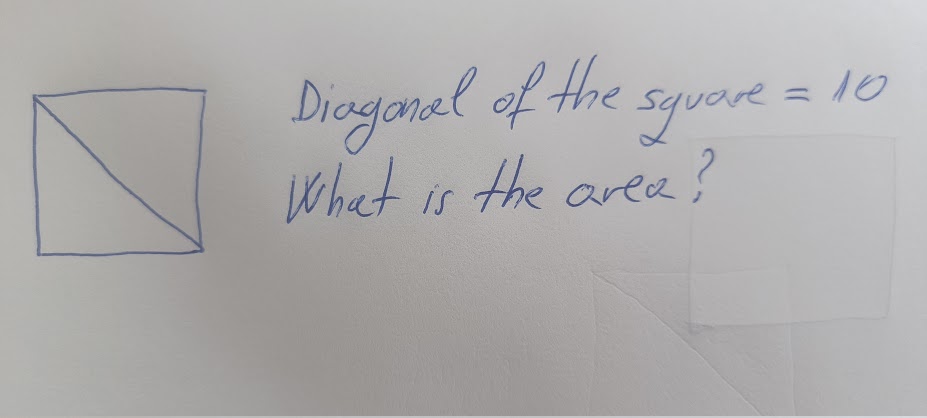 Diagonal of the square = 10
What is the area?